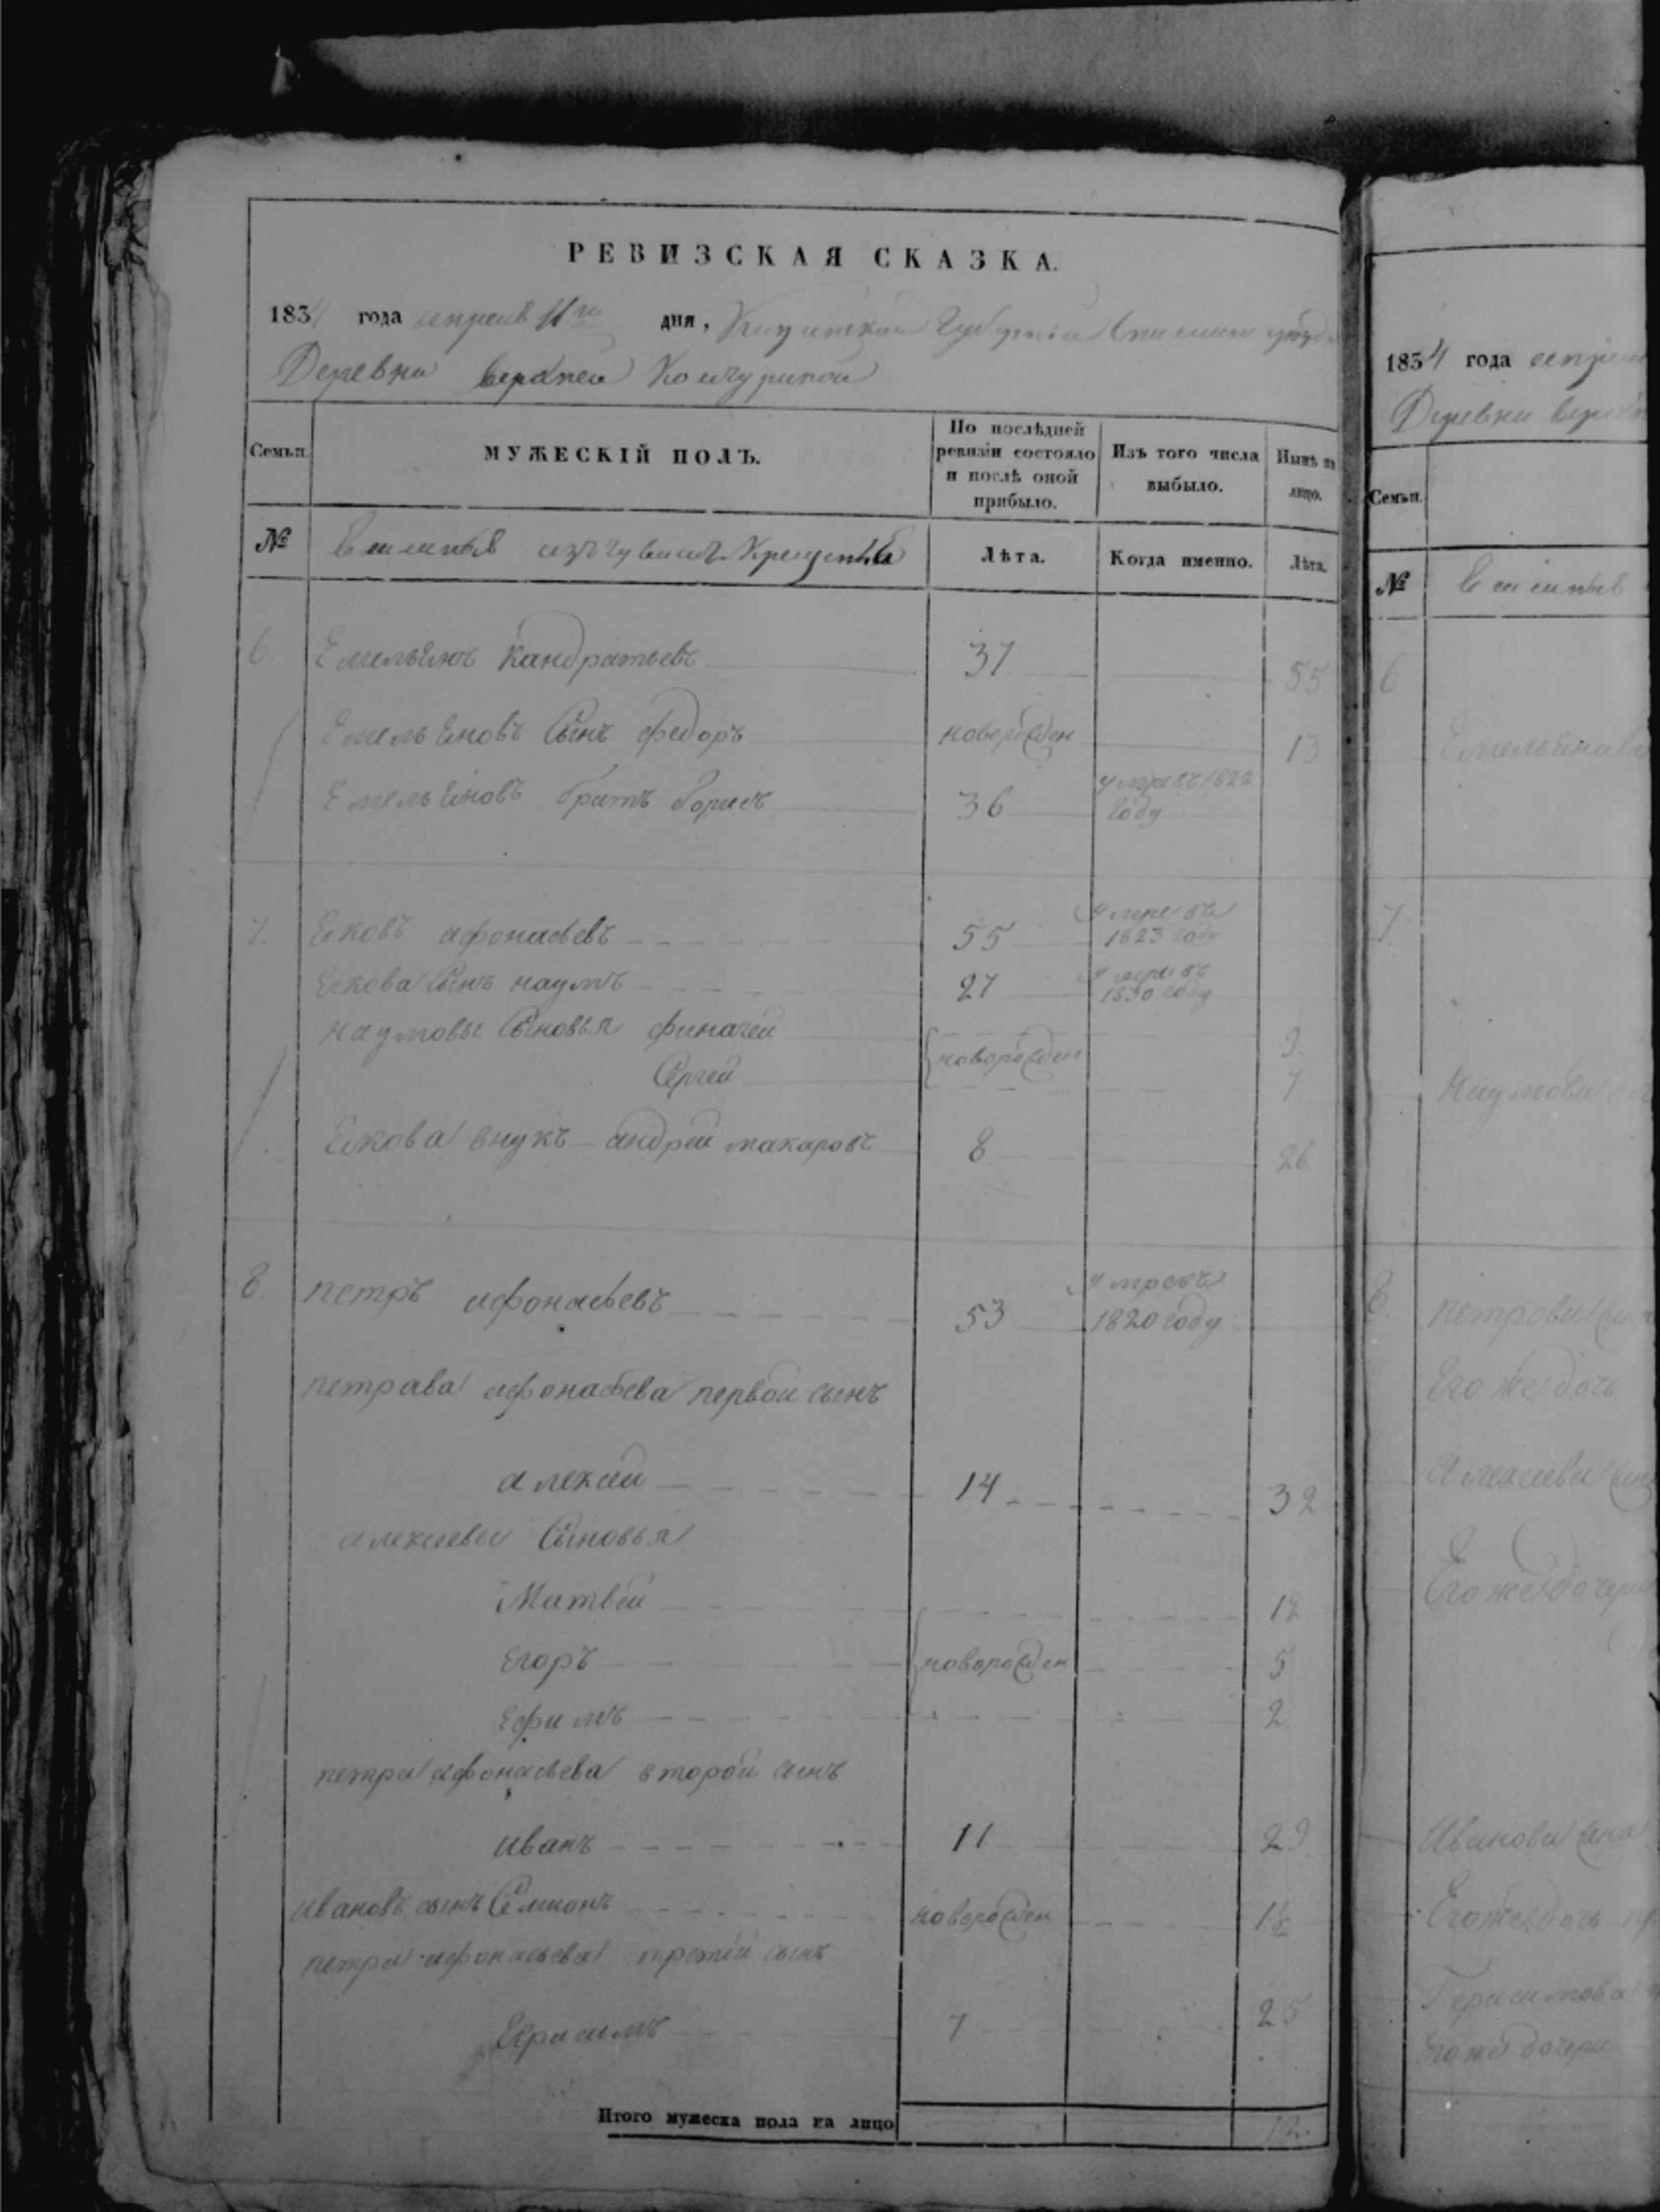 РЕВИЗСКАЯ СКАЗКА.
1834 года апреля 11го дня, Казанской Губернии уезда
Деревни верхней Кочгуриной
Семьи.
МУЖЕСКІЙ ПОЛЪ.
По послѣдней ревизіи состояло и послѣ оной прибыло.
Изъ того числа выбыло.
Нынѣ на лицо.
№
изъ чувашъ Крещеныхъ
Лѣта.
Когда именно.
Лѣта.
6. Емельянъ Кандратьевъ 37 55
Емельяновъ Сынъ федоръ новорожден 13
Емельяновъ братъ борисъ 36 умре въ 1822 году
7. Яковъ афонасьевъ 55 умре въ 1823 году
Якова Сынъ наумъ 27 умре въ 1830 году
наумовы Сыновья 9
Сергей новорожден 7
Якова внукъ андрей макаровъ 8 26
8. петръ афонасьевъ 53 умре въ 1820 году
петрава афонасьева первой сынъ
алексей 14 32
алексеевы Сыновья
Матвей 12
Егоръ новорожден 5
Ефимъ 2
петра афонасьева второй сынъ
иванъ 11 29
ивановъ сынъ Семионъ новорожден 1½
петра афонасьева третій сынъ
Герасимъ 7 25
Итого мужеска пола на лицо 12.
1834 года апреля
Деревни верхн
Семьи.
№
6
Емельянова
7.
Наумова
8. петрова
Его же дочь
Алексеева
Его же дочери
Иванова жена
Его же дочь
Герасимова
Его же дочери